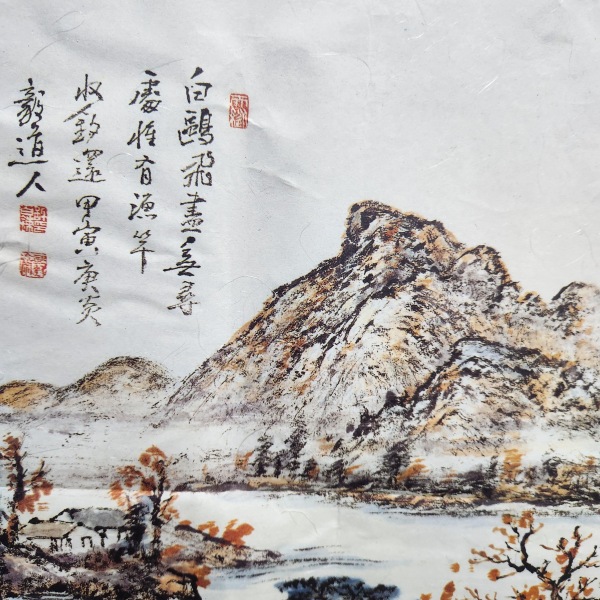 白鷗飛盡無尋
處惟有漁竿
收釣還 甲寅庚炎
毅道人